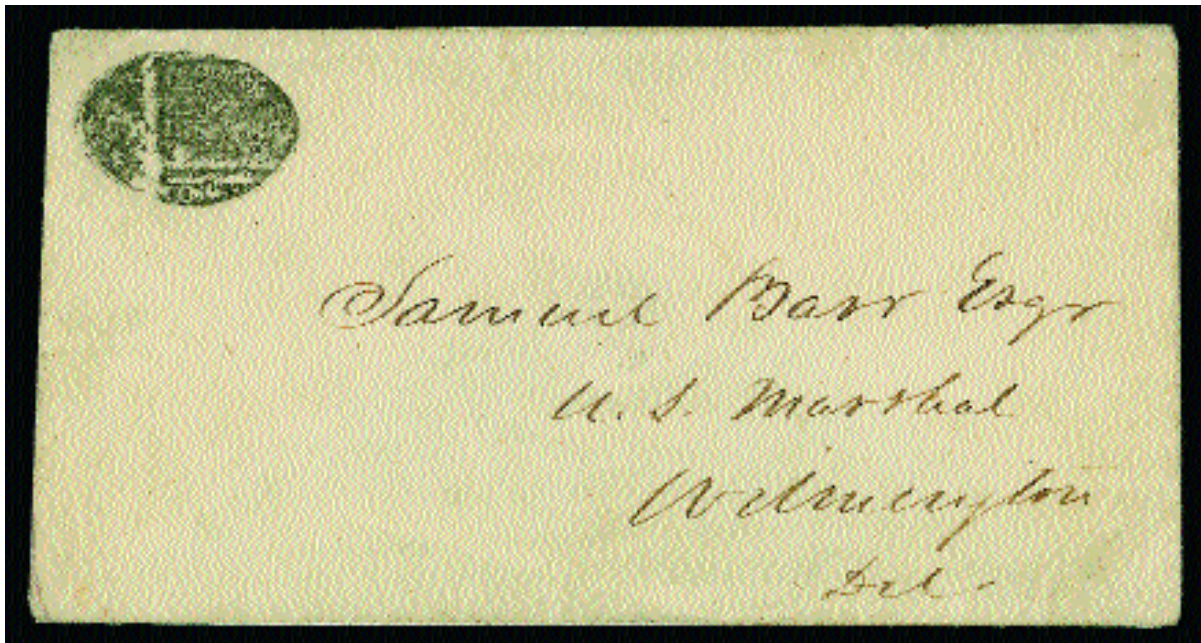 Samuel Barr Esqr
U. S. Marshal
Wilmington
Del -